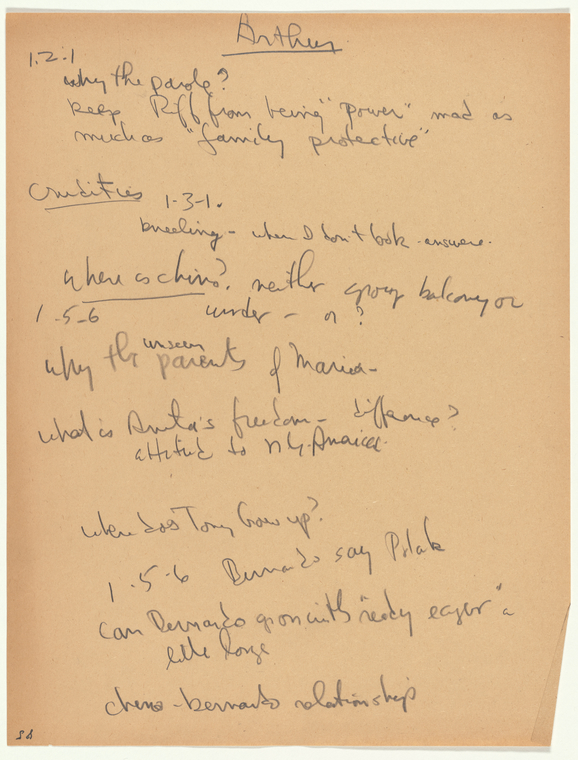 Arthur
1.2.1
why the parole?
keep Riff from being "power" mad as
much as "family protective"
Crudities 1-3-1.
kneeling - when I don't look - answers.
where is chino? neither group balcony or
1-5-6 under - or ?
unseen
why the parents of Maria -
what is Anita's freedom - difference?
attitude to N.Y. America.
when does Tony grow up?
1.5-6 Bernardo say Polak
can Bernardo go on with "ready eager" a
little longer
chino - bernardo relationship